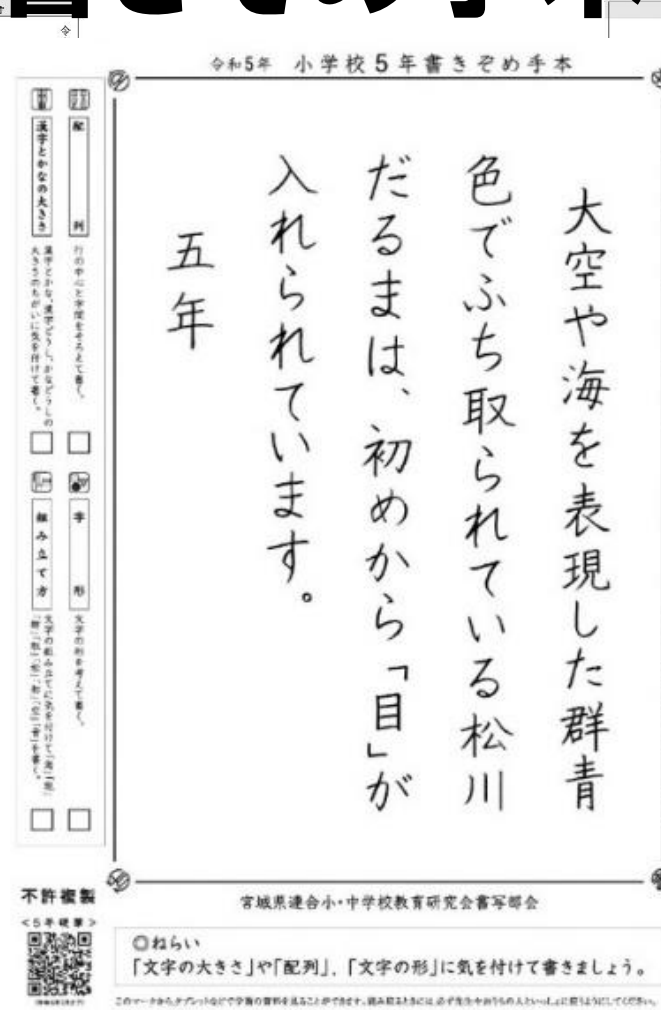 書きぞめ手本
令
令和5年 小学校5年書きぞめ手本
大空や海を表現した群青
色でふち取られている松川
だるまは、初めから「目」が
入れられています。
五年
配列
行の中心と字間をそろえて書く。
漢字とかなの大きさ
漢字とかな、漢字どうし、かなどうしの
大きさのちがいに気を付けて書く。
字形
文字の形を考えて書く。
組み立て方
文字の組み立てに気を付けて、「海」「現」
「群」「取」「松」「初」「空」「青」を書く。
不許複製
<5年硬筆>
宮城県連合小・中学校教育研究会書写部会
◎ねらい
「文字の大きさ」や「配列」、「文字の形」に気を付けて書きましょう。
このマークから、タブレットなどで学習の資料を見ることができます。読み取るときには、必ず先生やおうちの人といっしょに使うようにしてください。